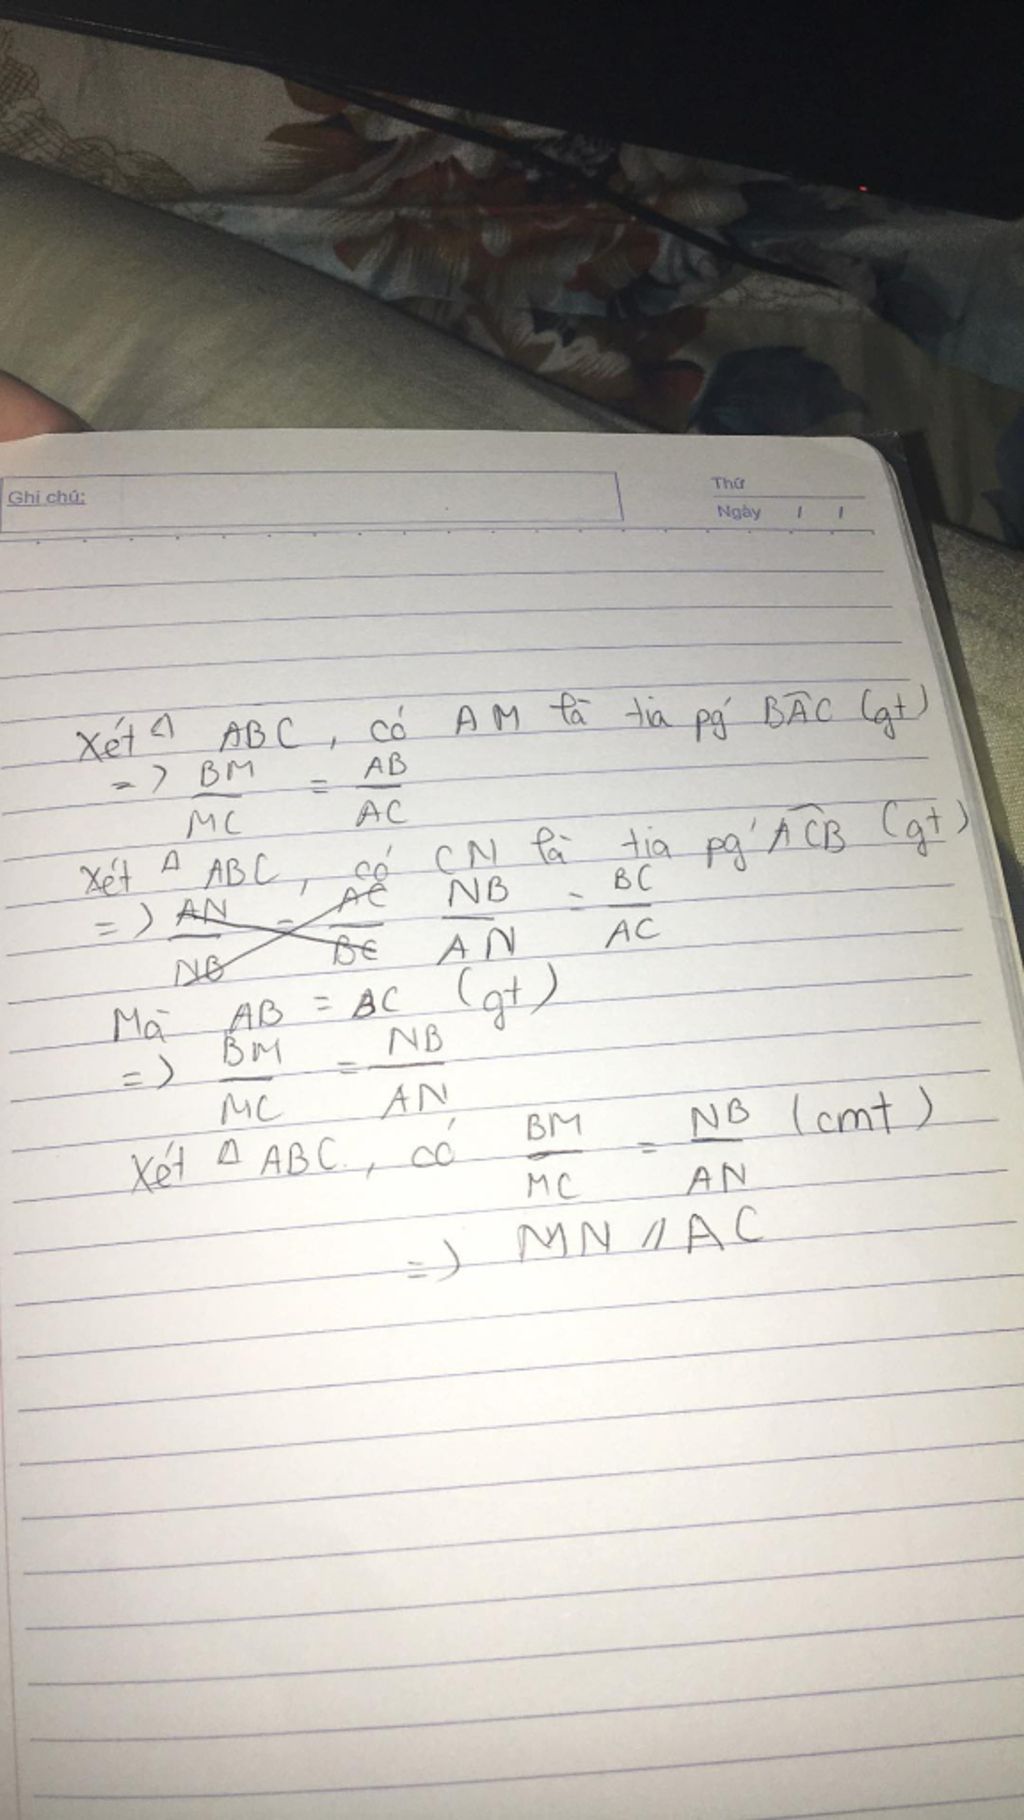 Ghi chú:
Thứ
Ngày / /
Xét Δ ABC, có AM là tia pg' BAC (gt)
=> BM/MC = AB/AC
Xét Δ ABC, có CN là tia pg' ACB (gt)
=> AN/NB = AC/BC NB/AN = BC/AC
Mà AB = BC (gt)
=> BM/MC = NB/AN
Xét Δ ABC, có BM/MC = NB/AN (cmt)
=> MN // AC